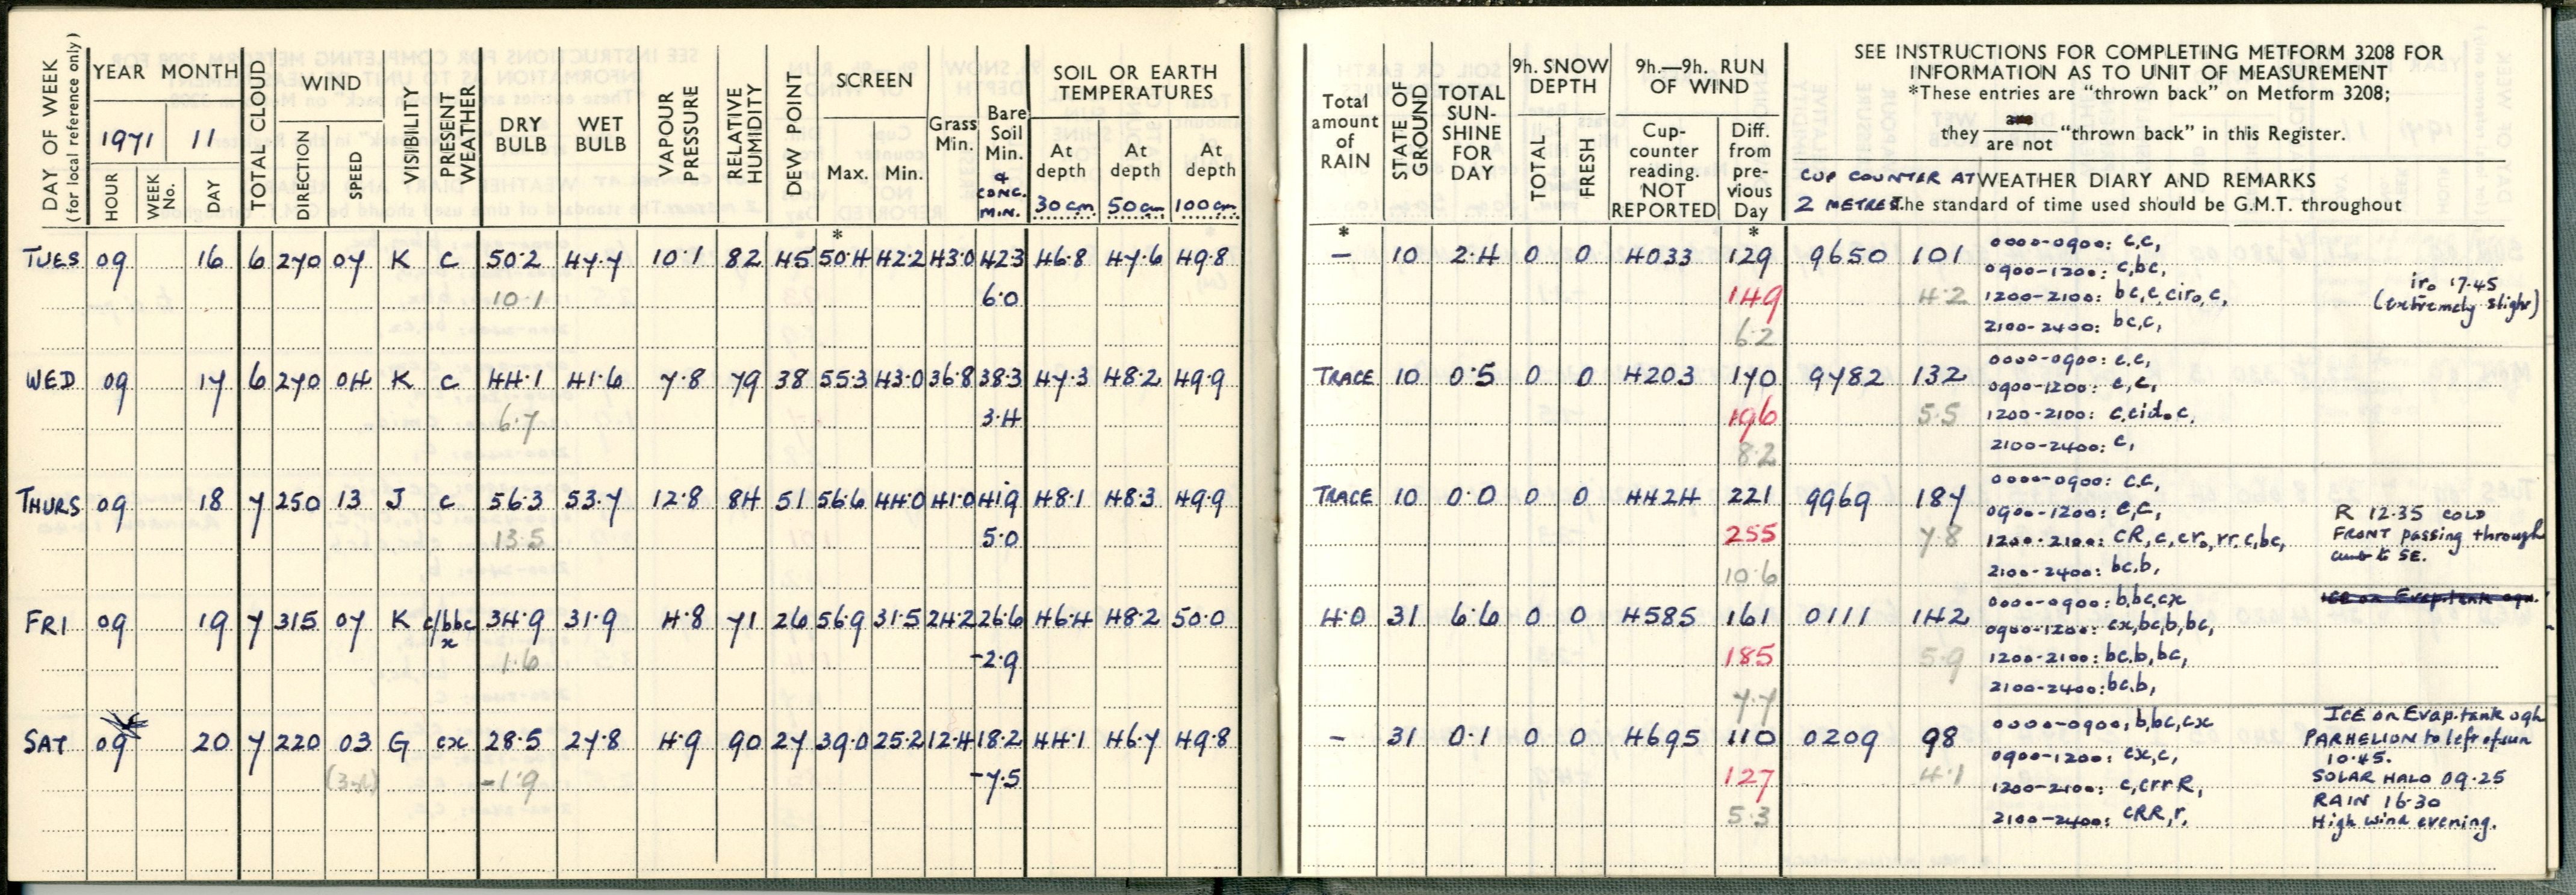 DAY OF WEEK (for local reference only)
YEAR MONTH
1971 11
HOUR WEEK No. DAY
TOTAL CLOUD
WIND
DIRECTION SPEED
VISIBILITY
PRESENT WEATHER
DRY BULB
WET BULB
VAPOUR PRESSURE
RELATIVE HUMIDITY
DEW POINT
SCREEN
Max. Min.
Grass Min.
Bare Soil Min. & CONC. MIN.
SOIL OR EARTH TEMPERATURES
At depth 30cm At depth 50cm At depth 100cm
Total amount of RAIN
STATE OF GROUND
TOTAL SUN-SHINE FOR DAY
9h. SNOW DEPTH
TOTAL FRESH
9h.—9h. RUN OF WIND
Cup-counter reading. NOT REPORTED
Diff. from pre-vious Day
SEE INSTRUCTIONS FOR COMPLETING METFORM 3208 FOR
INFORMATION AS TO UNIT OF MEASUREMENT
*These entries are "thrown back" on Metform 3208;
they are / are not "thrown back" in this Register.
CUP COUNTER AT 2 METRES
WEATHER DIARY AND REMARKS
The standard of time used should be G.M.T. throughout
* * *
TUES 09 16 6 270 07 K c 50.2 47.7 10.1 82 45 50.4 42.2 43.0 42.3 46.8 47.6 49.8 — 10 2.4 0 0 4033 129 9650 101 0000-0900: c,c,
0900-1200: c,bc,
10.1 6.0 149 4.2 1200-2100: bc,c,ciro,c, iro 17.45
(extremely slight)
6.2 2100-2400: bc,c,
WED 09 17 6 270 04 K c 44.1 41.6 7.8 79 38 55.3 43.0 36.8 38.3 47.3 48.2 49.9 TRACE 10 0.5 0 0 4203 170 9782 132 0000-0900: c,c,
0900-1200: c,c,
6.7 3.4 196 5.5 1200-2100: c,cido,c,
8.2 2100-2400: c,
THURS 09 18 7 250 13 J c 56.3 53.7 12.8 84 51 56.6 44.0 41.0 41.9 48.1 48.3 49.9 TRACE 10 0.0 0 0 4424 221 9969 187 0000-0900: c,c,
0900-1200: c,c, R 12.35 COLD
13.5 5.0 255 7.8 1200-2100: cR,c,cro,rr,c,bc, FRONT passing through
to SE.
10.6 2100-2400: bc,b,
FRI 09 19 7 315 07 K c/bbc x 34.9 31.9 4.8 71 26 56.9 31.5 24.2 26.6 46.4 48.2 50.0 4.0 31 6.6 0 0 4585 161 0111 142 0000-0900: b,bc,cx ICE on Evap tank 09h.
0900-1200: cx,bc,b,bc,
1.6 -2.9 185 5.9 1200-2100: bc,b,bc,
7.7 2100-2400: bc,b,
SAT 09 20 7 220 03 G cx 28.5 27.8 4.9 90 27 39.0 25.2 12.4 18.2 44.1 46.7 49.8 — 31 0.1 0 0 4695 110 0209 98 0000-0900: b,bc,cx ICE on Evap. tank 09h
PARHELION to left of sun
0900-1200: cx,c, 10.45.
-1.9 -7.5 127 4.1 1200-2100: c,crrR, SOLAR HALO 09.25
RAIN 16.30
5.3 2100-2400: cRR,r, High wind evening.